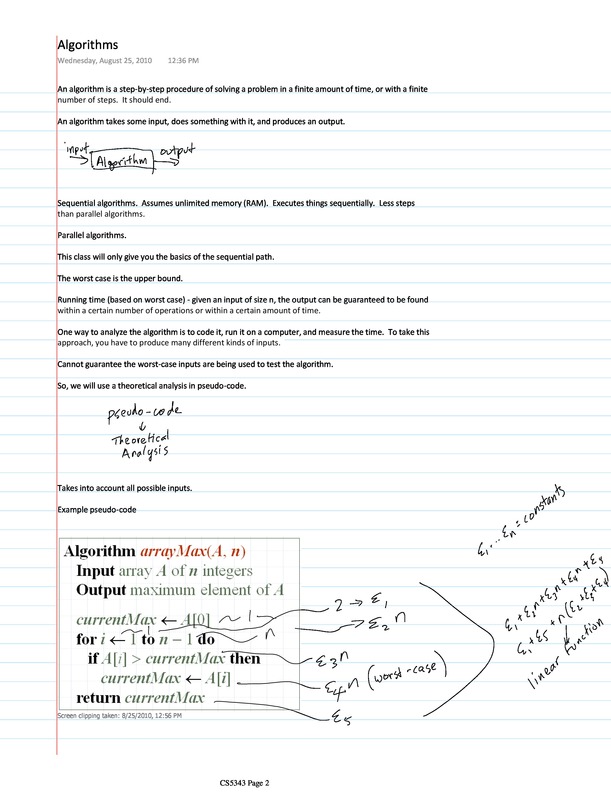 Algorithms
Wednesday, August 25, 2010 12:36 PM
An algorithm is a step-by-step procedure of solving a problem in a finite amount of time, or with a finite
number of steps. It should end.
An algorithm takes some input, does something with it, and produces an output.
input Algorithm output
Sequential algorithms. Assumes unlimited memory (RAM). Executes things sequentially. Less steps
than parallel algorithms.
Parallel algorithms.
This class will only give you the basics of the sequential path.
The worst case is the upper bound.
Running time (based on worst case) - given an input of size n, the output can be guaranteed to be found
within a certain number of operations or within a certain amount of time.
One way to analyze the algorithm is to code it, run it on a computer, and measure the time. To take this
approach, you have to produce many different kinds of inputs.
Cannot guarantee the worst-case inputs are being used to test the algorithm.
So, we will use a theoretical analysis in pseudo-code.
pseudo-code
↓
Theoretical
Analysis
Takes into account all possible inputs.
Example pseudo-code
Algorithm arrayMax(A, n)
Input array A of n integers
Output maximum element of A
currentMax ← A[0] ~ 1
for i ← 1 to n − 1 do
if A[i] > currentMax then
currentMax ← A[i]
return currentMax
~ 1
n
2 → ε1
→ ε2 n
ε3 n
ε4 n (worst-case)
ε5
ε1 ... εn = constants
ε1 + ε2 n + ε3 n + ε4 n + ε5
ε1 + ε5 + n (ε2 + ε3 + ε4)
linear function
Screen clipping taken: 8/25/2010, 12:56 PM
CS5343 Page 2